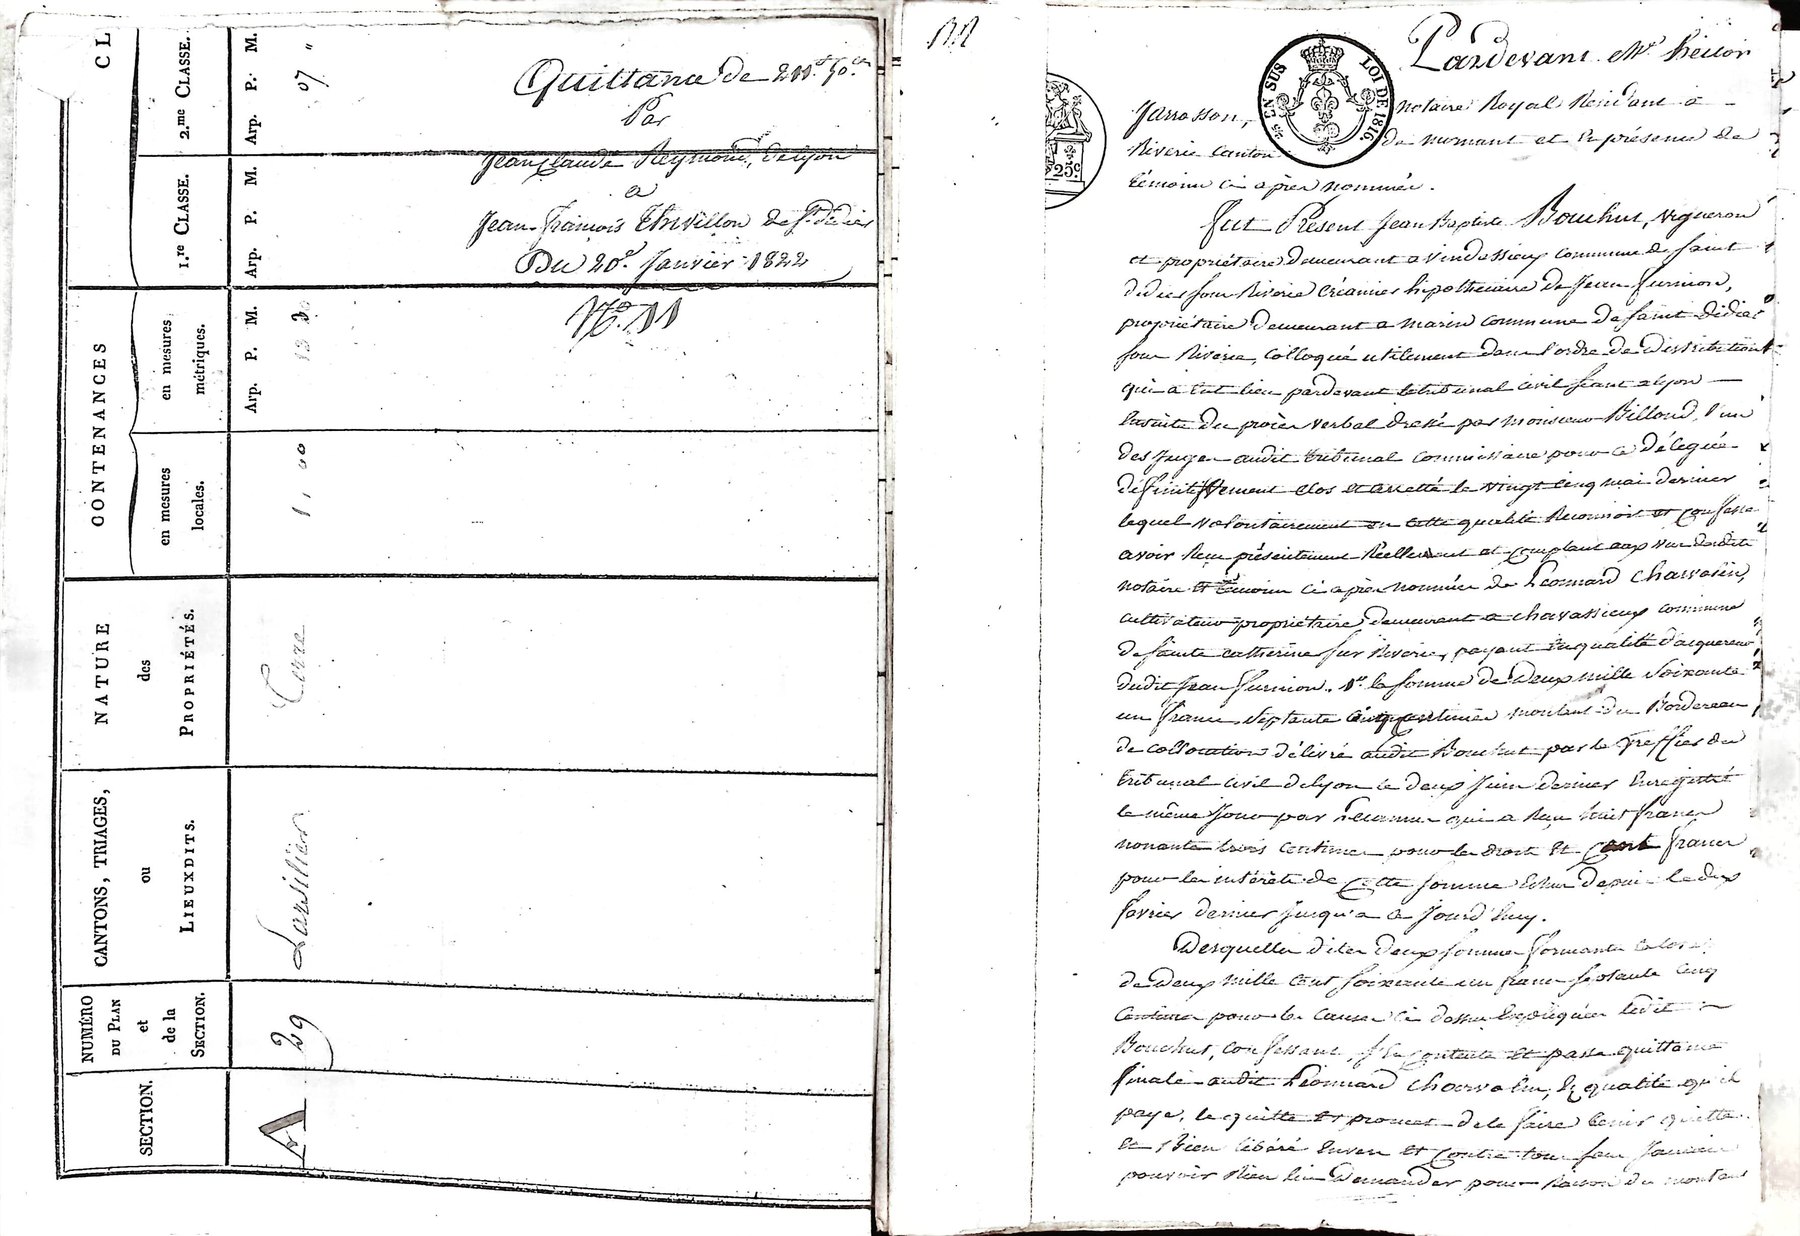 Quittance de 211f. 50.c
Par
Jean Claude Reymond, de lyon
a
Jean-François Thivillon de St. didier
Du 20e. Janvier 1822
No. 11
SECTION.
NUMÉRO
DU PLAN
et
de la
SECTION.
CANTONS, TRIAGES,
ou
LIEUXDITS.
NATURE
des
PROPRIÉTÉS.
CONTENANCES
en mesures
locales.
en mesures
métriques.
CL
1.re CLASSE.
2.me CLASSE.
Arp. P. M.
Arp. P. M.
Arp. P. M.
A
29
Terre
Pardevant Me. hector
Jarrosson, notaire Royal Residant a
Riverie canton de mornant et En présence de
témoins ci après nommés.
EN SUS
LOI DE 1816
25c
fut Présent Jean Baptiste Bouchut, vigneron
et propriétaire demeurant a vindassieux commune de saint
didier sous Riverie Créancier hipothécaire de Jean furnion,
propriétaire demeurant a marin commune de saint didier
sous Riverie, colloqué utilement dans l'ordre de Distribution
qui a Eut lieu pardevant le tribunal civil séant a lyon
Ensuite du procès verbal dressé par monsieur Billoud, l'un
des Juges audit tribunal commissaire pour ce délégué
définitivement clos et arretté le vingt cinq mai dernier
lequel volontairement en cette qualité Reconnoit et confesse
avoir Reçu présentement Réellement et comptant aux vue dudit
notaire et témoins ci après nommés de Léonnard Charvolin,
cultivateur propriétaire demeurant a chavassieux commune
de sainte catherine sur Riverie, payant En qualité d'acquereur
dudit Jean furnion. 1e. la somme de Deux mille soixante
un francs septante cinq centimes montant du Bordereau
de collocation délivré audit Bouchut par le greffier du
tribunal civil de lyon le deux Juin dernier Enregistré
le même Jour par Lecamus qui a Reçu huit francs
nonante trois centimes pour le droit Et Cent francs
pour les intérêts de Cette somme Echus depuis le dix
fevrier dernier Jusqu'a ce Jourd'huy.
Desquelles dites deux sommes formants celle
de deux mille cent soixante un francs septante cinq
Centimes pour les Causes ci dessus Expliquées ledit
Bouchut, confessant, se Contente Et passe quittance
finale audit Léonnard Charvolin, En qualité qu'il
paye, le quitte Et promet de le faire tenir quitte
Et Bien libéré Envers Et Contre tous sans Jamais
pouvoir Rien lui Demander pour Raison du montant